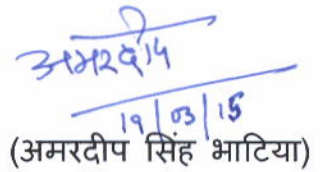 अमरदीप
19/03/15
(अमरदीप सिंह भाटिया)